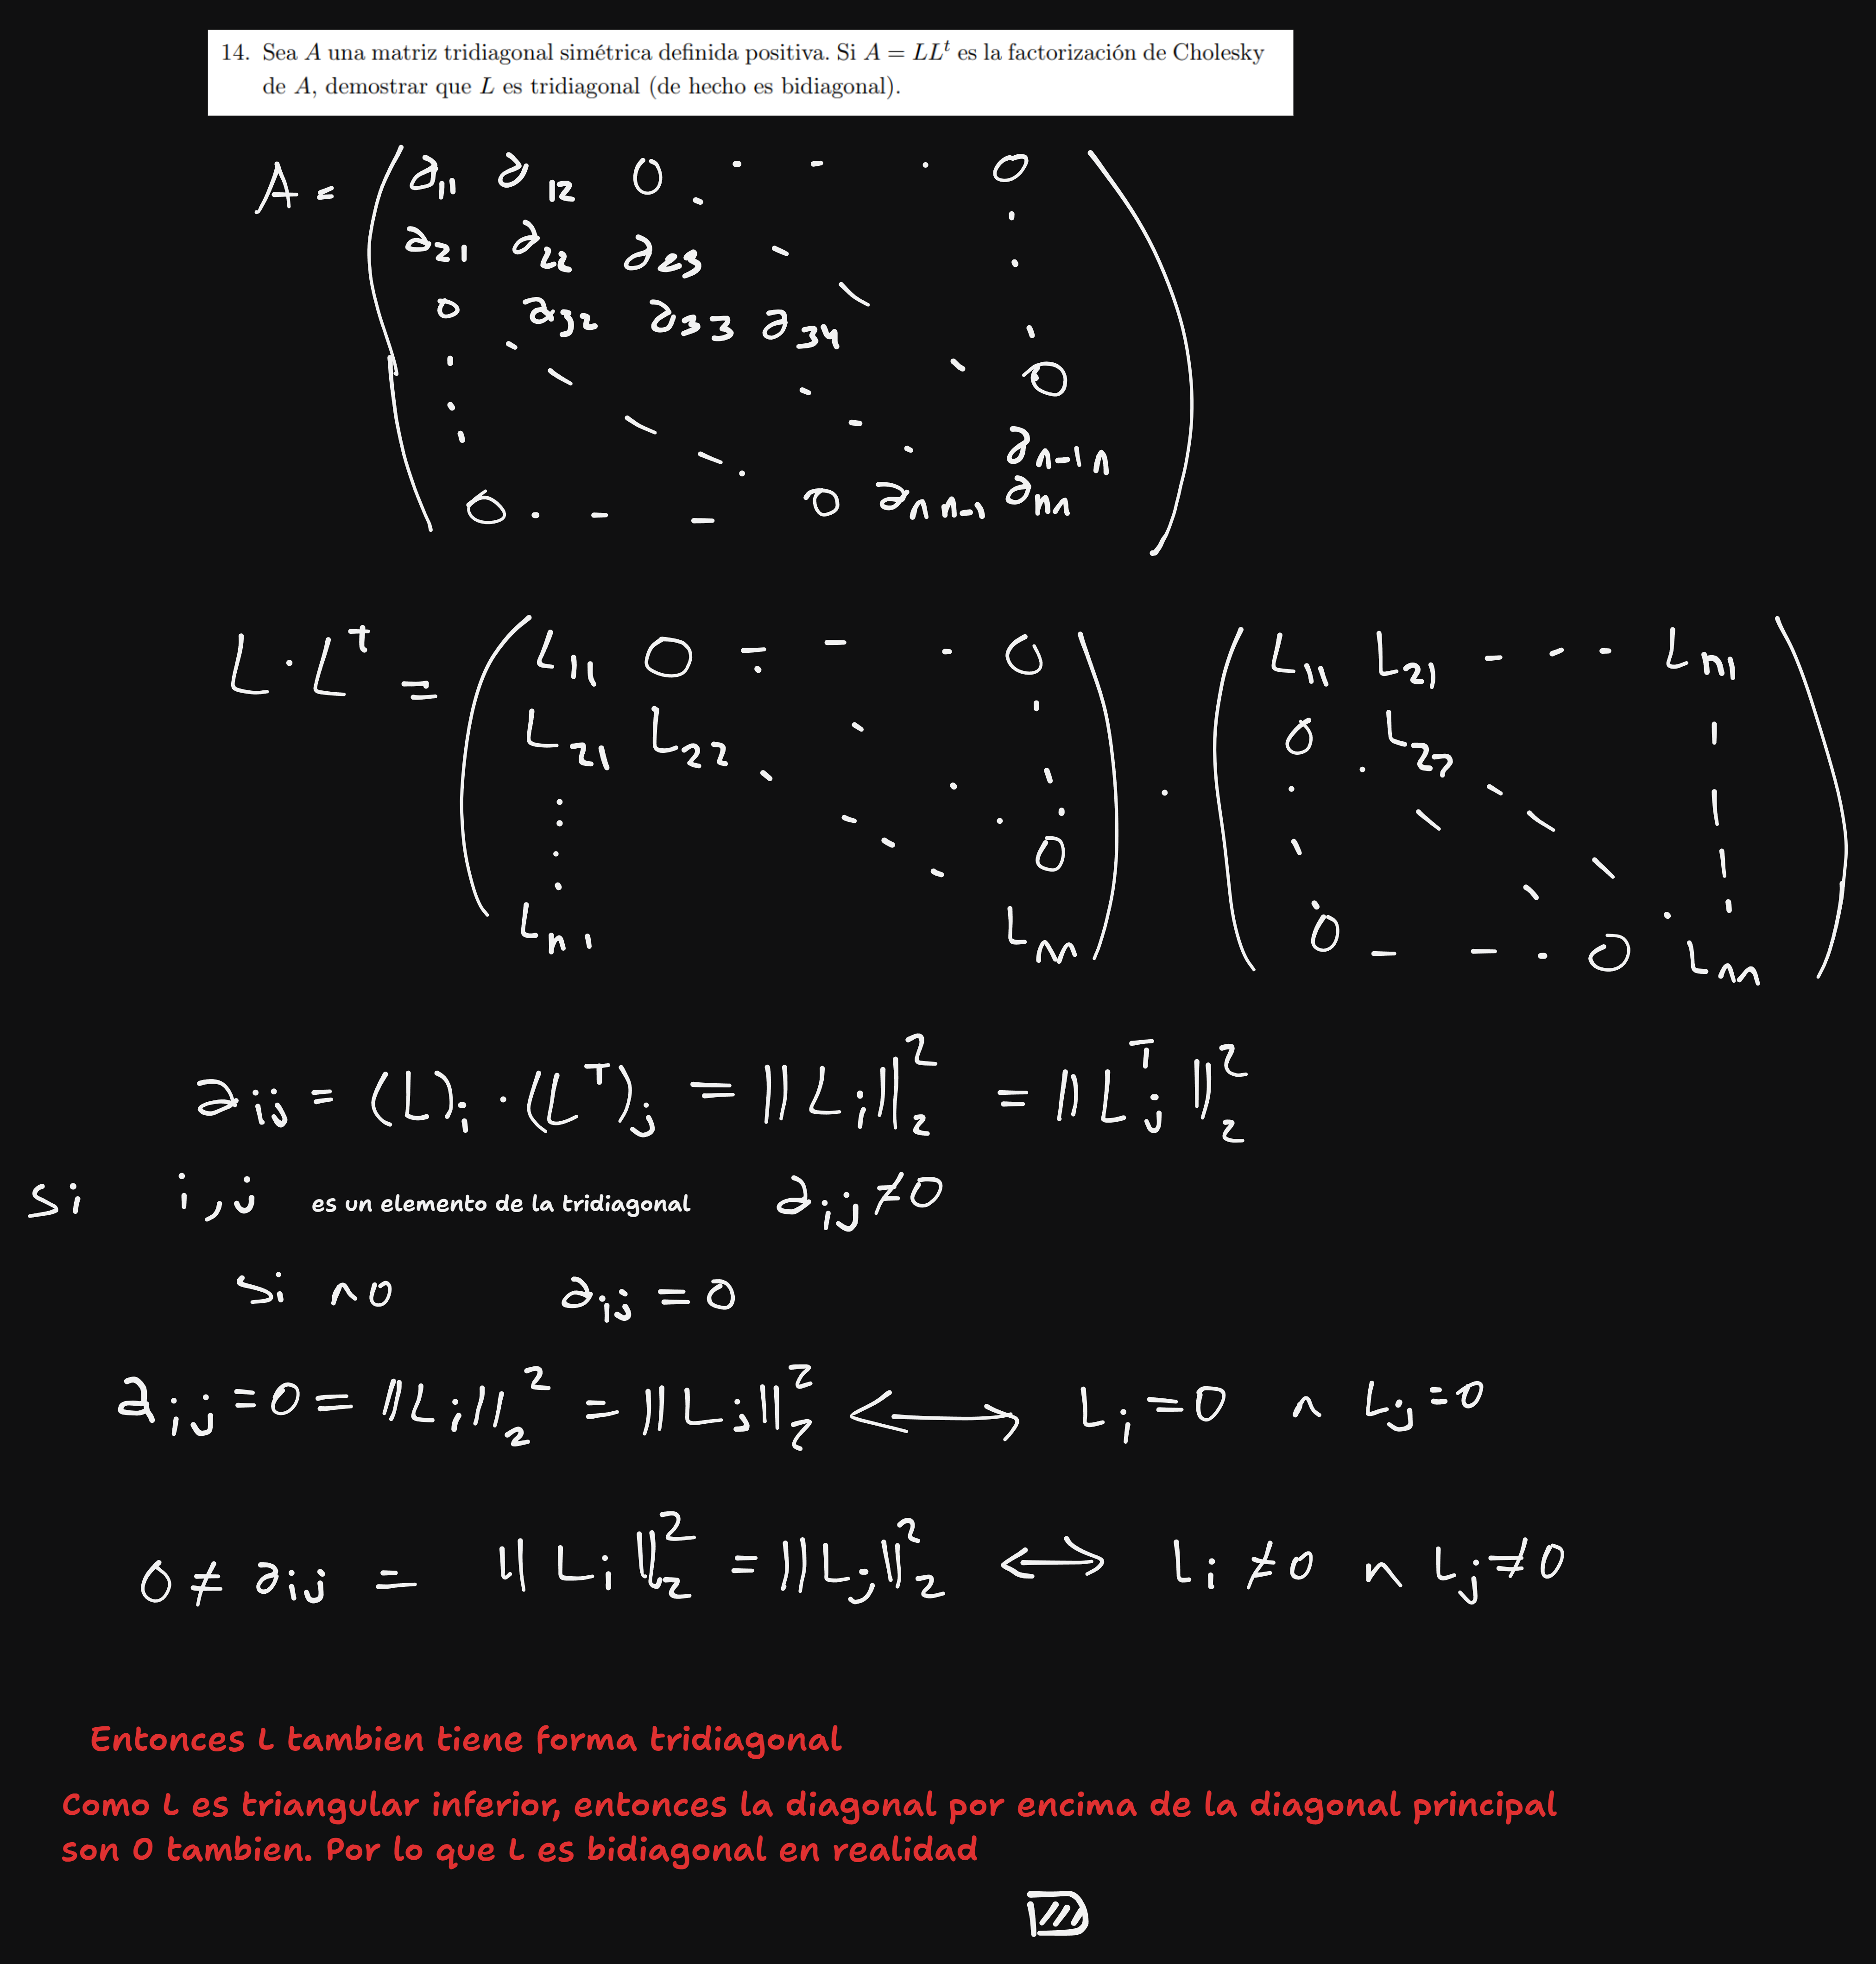 14. Sea A una matriz tridiagonal simétrica definida positiva. Si A = LLᵗ es la factorización de Cholesky
de A, demostrar que L es tridiagonal (de hecho es bidiagonal).
A = ( a₁₁ a₁₂ 0 . - - . 0
a₂₁ a₂₂ a₂₃
0 a₃₂ a₃₃ a₃₄
0
aₙ₋₁ₙ
0 . - - 0 aₙₙ₋₁ aₙₙ )
L · Lᵗ = ( L₁₁ 0 - - - 0 ) · ( L₁₁ L₂₁ - - - Lₙ₁ )
L₂₁ L₂₂ 0 L₂₂
0
Lₙ₁ Lₙₙ 0 - - . 0 Lₙₙ
aᵢⱼ = (L)ᵢ · (Lᵀ)ⱼ = ||Lᵢ||₂² = ||Lⱼᵀ||₂²
si i,j es un elemento de la tridiagonal aᵢⱼ ≠ 0
si no aᵢⱼ = 0
aᵢⱼ = 0 = ||Lᵢ||₂² = ||Lⱼ||₂² ⟺ Lᵢ = 0 ∧ Lⱼ = 0
0 ≠ aᵢⱼ = ||Lᵢ||₂² = ||Lⱼ||₂² ⟺ Lᵢ ≠ 0 ∧ Lⱼ ≠ 0
Entonces L tambien tiene forma tridiagonal
Como L es triangular inferior, entonces la diagonal por encima de la diagonal principal
son 0 tambien. Por lo que L es bidiagonal en realidad